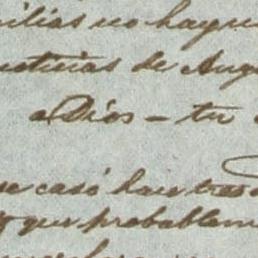 ilias no hay
noticias de Aug
a Dios - tu
se casó hace tres
que probablem